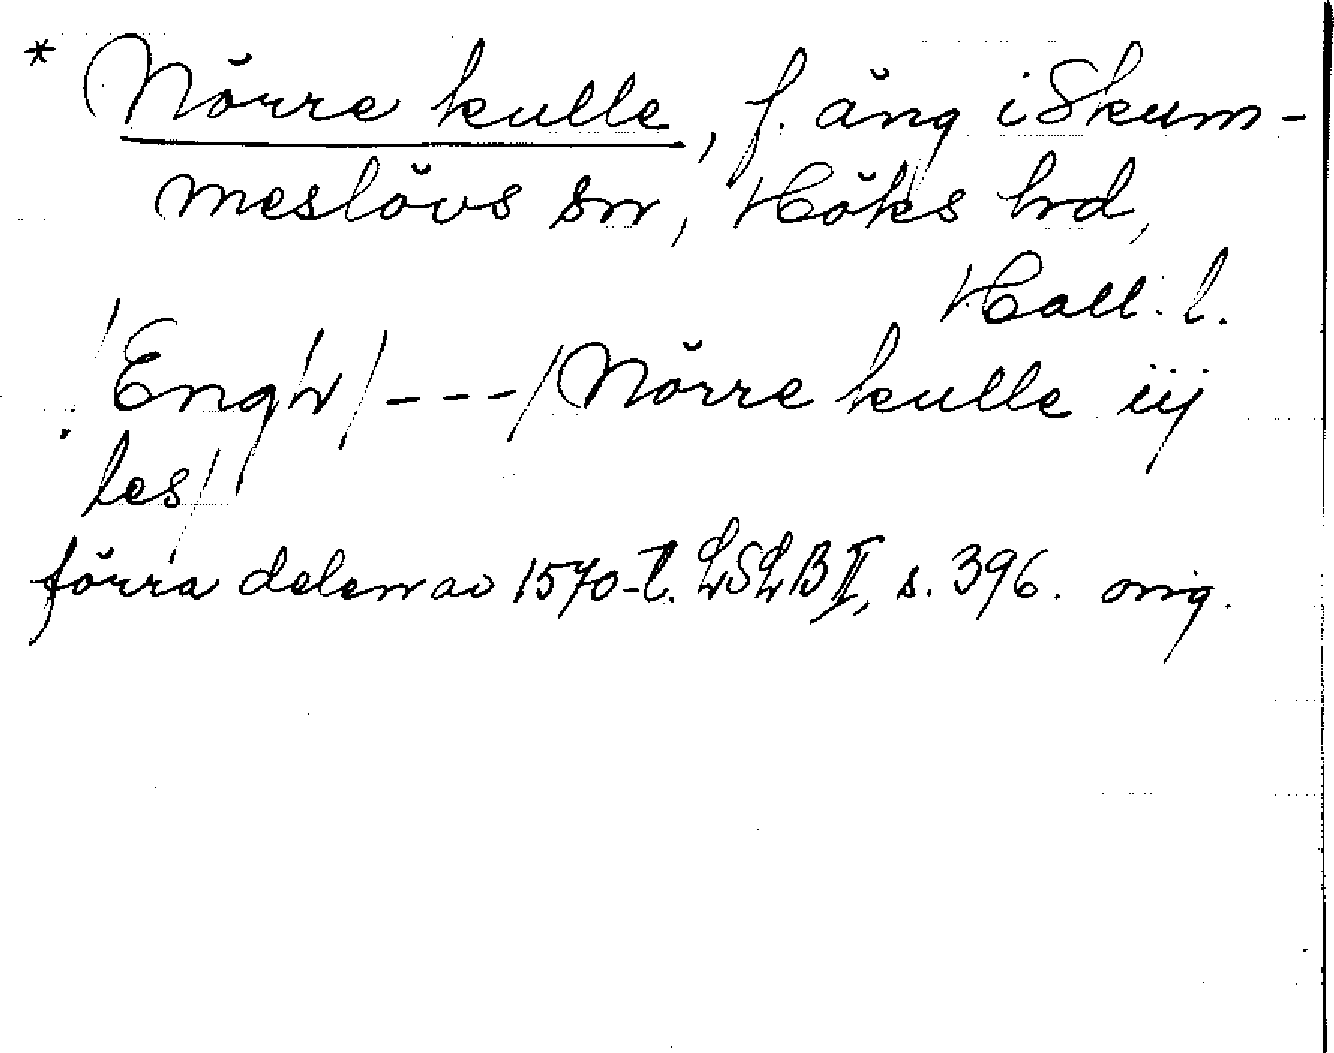 * Nörre kulle, f. äng i Skum-
meslövs sn, Höks hd,
Hall. l.
/Eng/r/ --- / Nörre kulle iij
les/
förra delen av 1570-t. LSLB II, s. 396. orig.